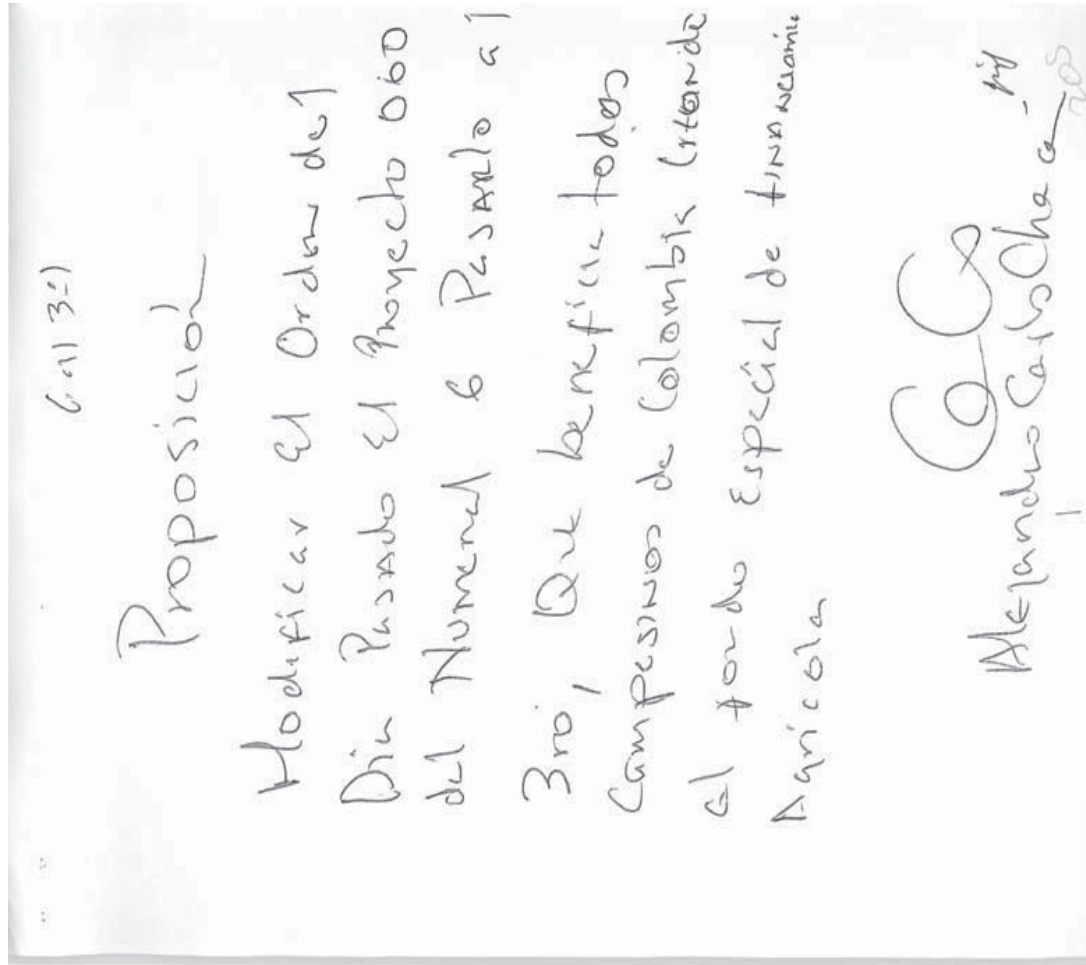 Proposición
Modificar El Orden del
Dia Pasando El Proyecto 060
del Numeral 6 Pasarlo al
3ro, Que beneficia todos
Campesinos de Colombia Creando
el fondo Especial de financiamiento
Agricola
Alejandro Carlos Chacon